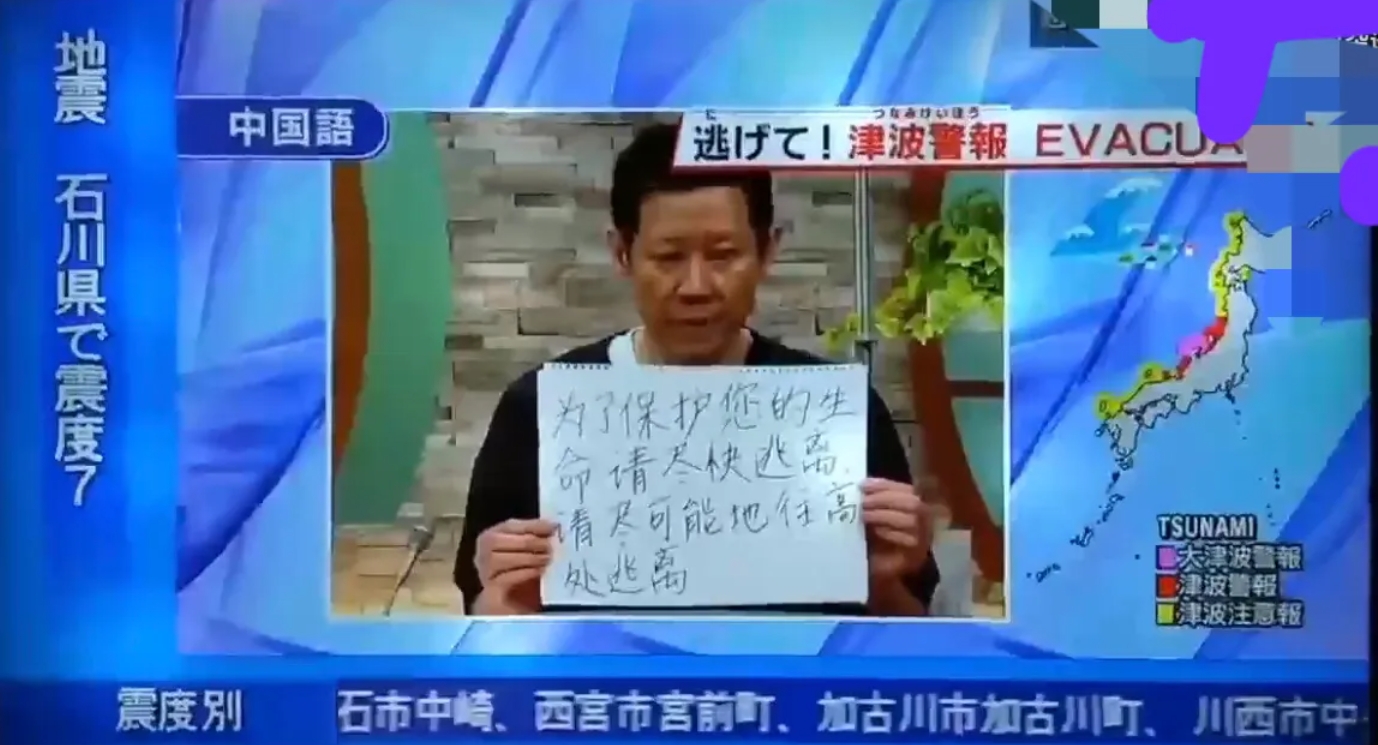 地震 石川県で震度7
中国語
に
つなみけいほう
逃げて!津波警報 EVACUA
为了保护您的生
命请尽快逃离、
请尽可能地往高
处逃离
TSUNAMI
大津波警報
津波警報
津波注意報
震度別
石市中崎、西宮市宮前町、加古川市加古川町、川西市中